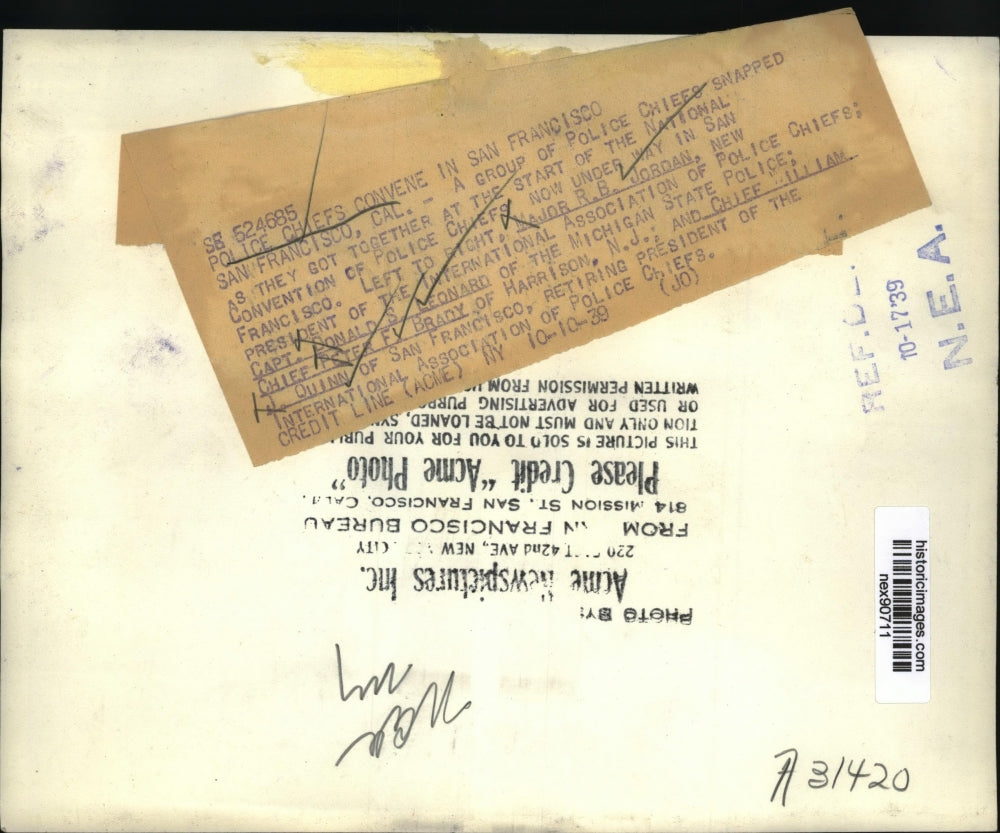 SB 524685
POLICE CHIEFS CONVENE IN SAN FRANCISCO
SAN FRANCISCO, CAL. - A GROUP OF POLICE CHIEFS SNAPPED
AS THEY GOT TOGETHER AT THE START OF THE NATIONAL
CONVENTION OF POLICE CHIEFS NOW UNDER WAY IN SAN
FRANCISCO. LEFT TO RIGHT, MAJOR R.B. JORDAN, NEW
PRESIDENT OF THE INTERNATIONAL ASSOCIATION OF POLICE CHIEFS;
CAPT. DONALD S. LEONARD OF THE MICHIGAN STATE POLICE;
CHIEF BRADY OF HARRISON, N.J.; AND CHIEF WILLIAM
J. QUINN OF SAN FRANCISCO, RETIRING PRESIDENT OF THE
INTERNATIONAL ASSOCIATION OF POLICE CHIEFS.
CREDIT LINE (ACME) NY 10-10-39 (JO)
REF.
10-17'39
N.E.A.
PHOTO BY:
Acme Newspictures Inc.
220 42nd AVE, NEW CITY
FROM FRANCISCO BUREAU
814 MISSION ST. SAN FRANCISCO, CALIF.
Please Credit "Acme Photo"
THIS PICTURE IS SOLD TO YOU FOR YOUR PUBLI
TION ONLY AND MUST NOT BE LOANED, SYN
OR USED FOR ADVERTISING PURPO
WRITTEN PERMISSION FROM US
historicimages.com
nex90711
A 31420